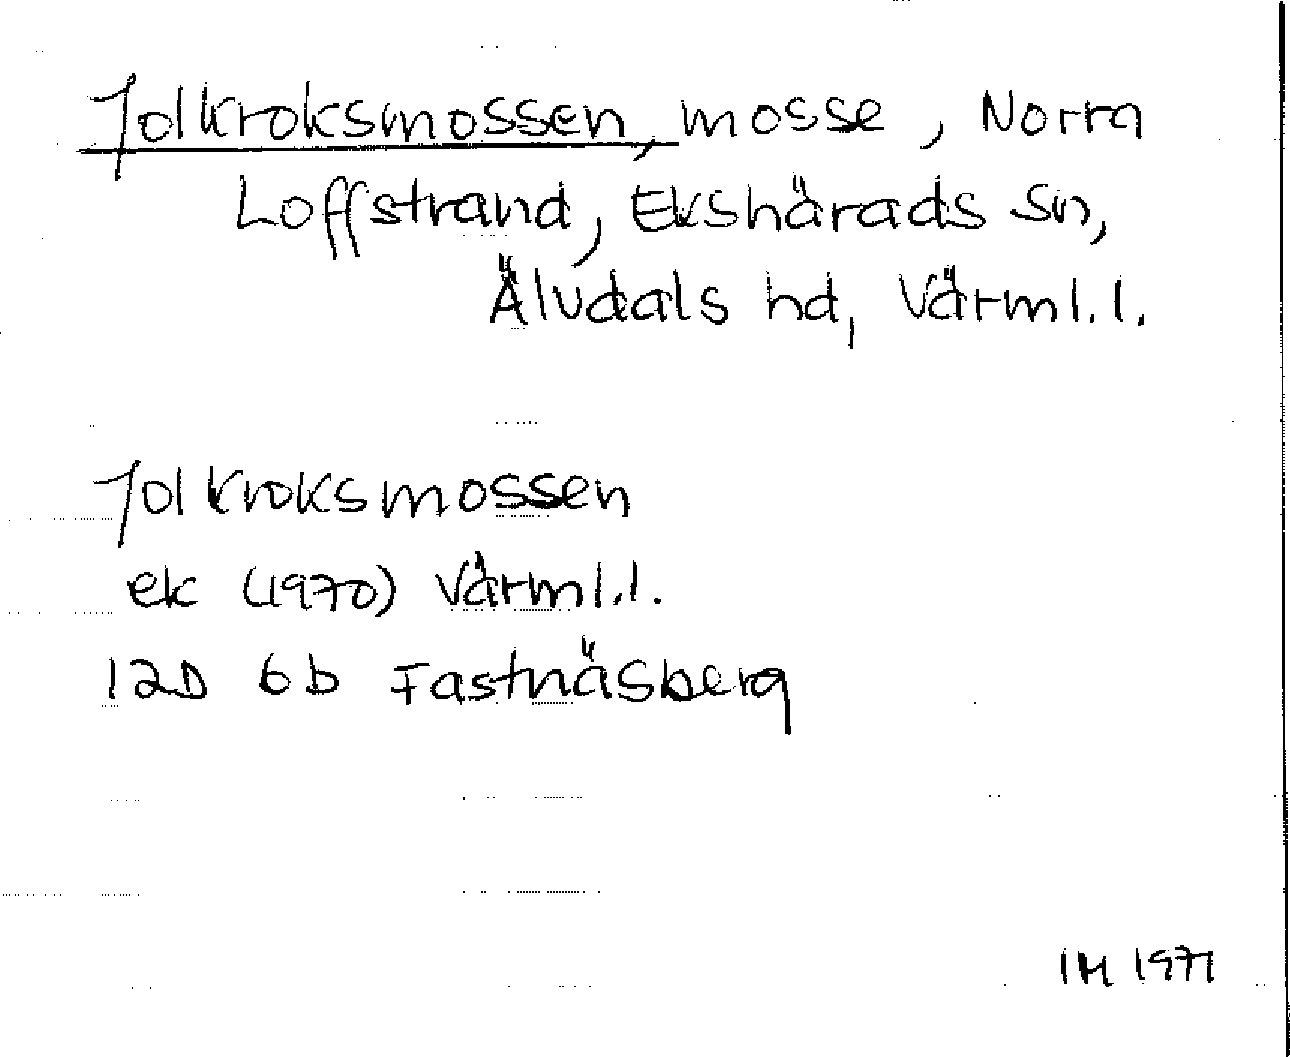 Jolkroksmossen, mosse, Norra
Loffstrand, Ekshärads sn,
Älvdals hd, Värml. l.
Jolkroksmossen
ek (1970) Värml. l.
12D 6b Fastnäsberg
IM 1971